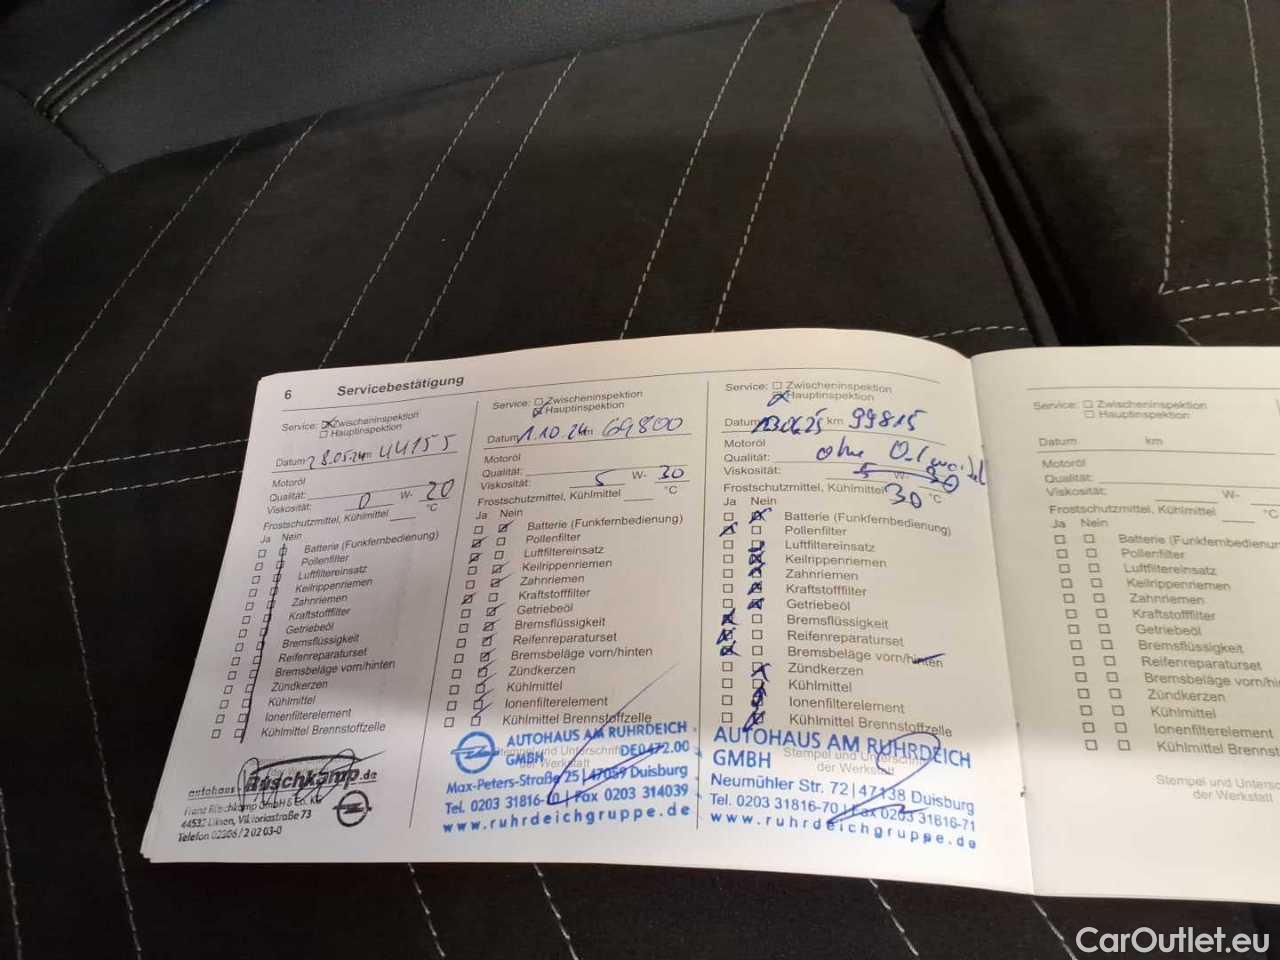 6 Servicebestätigung
Service: Zwischeninspektion
Hauptinspektion
Datum 28.05.24 km 44155
Motoröl
Qualität:
Viskosität: 0 W- 20
Frostschutzmittel, Kühlmittel °C
Ja Nein
Batterie (Funkfernbedienung)
Pollenfilter
Luftfiltereinsatz
Keilrippenriemen
Zahnriemen
Kraftstofffilter
Getriebeöl
Bremsflüssigkeit
Reifenreparaturset
Bremsbeläge vorn/hinten
Zündkerzen
Kühlmittel
Ionenfilterelement
Kühlmittel Brennstoffzelle
autohaus Rüschkamp.de
Franz Rüschkamp GmbH & Co. KG
44532 Lünen, Viktoriastraße 73
Telefon 02306/2 02 03-0
Service: Zwischeninspektion
Hauptinspektion
Datum 1.10.24 km 69800
Motoröl
Qualität:
Viskosität: 5 W- 30
Frostschutzmittel, Kühlmittel °C
Ja Nein
Batterie (Funkfernbedienung)
Pollenfilter
Luftfiltereinsatz
Keilrippenriemen
Zahnriemen
Kraftstofffilter
Getriebeöl
Bremsflüssigkeit
Reifenreparaturset
Bremsbeläge vorn/hinten
Zündkerzen
Kühlmittel
Ionenfilterelement
Kühlmittel Brennstoffzelle
Stempel und Unterschrift
der Werkstatt
AUTOHAUS AM RUHRDEICH
GMBH DE0472.00
Max-Peters-Straße 25 | 47059 Duisburg
Tel. 0203 31816-10 | Fax 0203 314039
www.ruhrdeichgruppe.de
Service: Zwischeninspektion
Hauptinspektion
Datum 13.06.25 km 99815
Motoröl
Qualität: ohne
Viskosität: 5 W- 30
Frostschutzmittel, Kühlmittel 30 °C
Ja Nein
Batterie (Funkfernbedienung)
Pollenfilter
Luftfiltereinsatz
Keilrippenriemen
Zahnriemen
Kraftstofffilter
Getriebeöl
Bremsflüssigkeit
Reifenreparaturset
Bremsbeläge vorn/hinten
Zündkerzen
Kühlmittel
Ionenfilterelement
Kühlmittel Brennstoffzelle
Stempel und Unterschrift
der Werkstatt
AUTOHAUS AM RUHRDEICH
GMBH
Neumühler Str. 72 | 47138 Duisburg
Tel. 0203 31816-70 | Fax 0203 31816-71
www.ruhrdeichgruppe.de
Service: Zwischeninspektion
Hauptinspektion
Datum km
Motoröl
Qualität:
Viskosität: W-
Frostschutzmittel, Kühlmittel °C
Ja Nein
Batterie (Funkfernbedienun
Pollenfilter
Luftfiltereinsatz
Keilrippenriemen
Zahnriemen
Kraftstofffilter
Getriebeöl
Bremsflüssigkeit
Reifenreparaturset
Bremsbeläge vorn/hin
Zündkerzen
Kühlmittel
Ionenfilterelement
Kühlmittel Brennst
Stempel und Unters
der Werkstatt
CarOutlet.eu